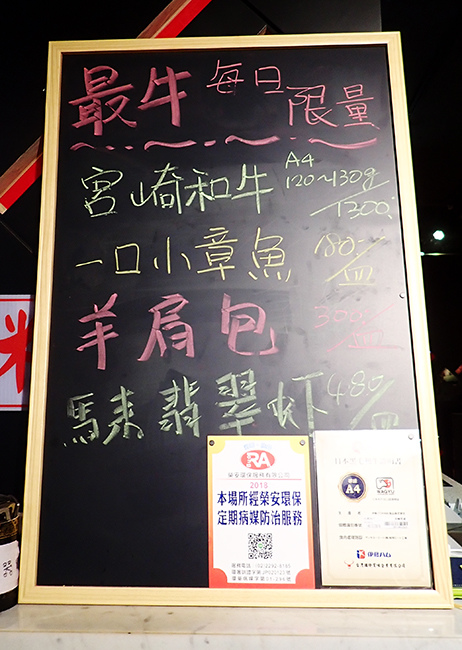 最牛 每日限量
宮崎和牛 A4 120~130g/1300.
一口小章魚 180-/皿
羊肩包 300/皿
馬來翡翠蝦 480/皿
RA
榮安環保服務有限公司
2018
本場所經榮安環保
定期病媒防治服務
A4
伊藤ハム